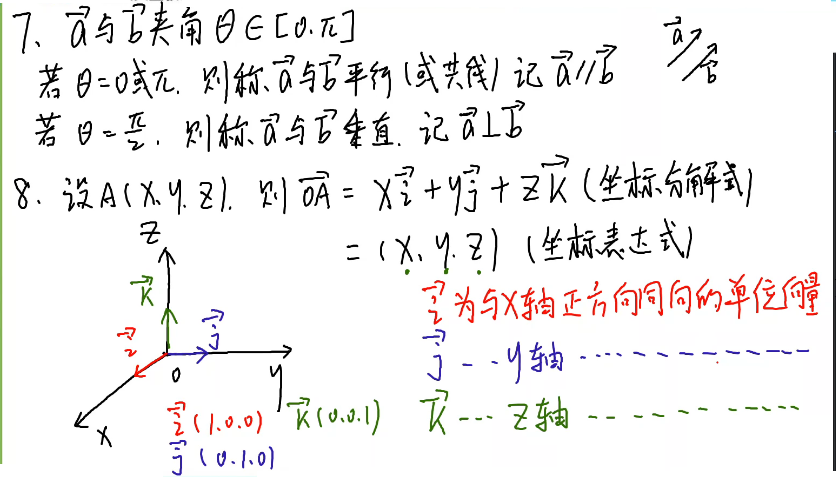 7、a⃗与b⃗夹角θ∈[0.π]
若θ=0或π. 则称、a⃗与b⃗平行(或共线) 记 a⃗//b⃗
a⃗
b⃗
若θ=π/2. 则称a⃗与b⃗垂直. 记a⃗⊥b⃗
8. 设A(X.Y.Z). 则 OA⃗ = Xi⃗+yj⃗+ZK⃗ (坐标分解式)
= (X、y.Z) (坐标表达式)
Z
K⃗
i⃗
j⃗
0
y
X
i⃗(1.0.0) K⃗(0.0.1)
j⃗(0.1.0)
i⃗为与X轴正方向同向的单位向量
j⃗--y轴------------
K⃗---Z轴------------